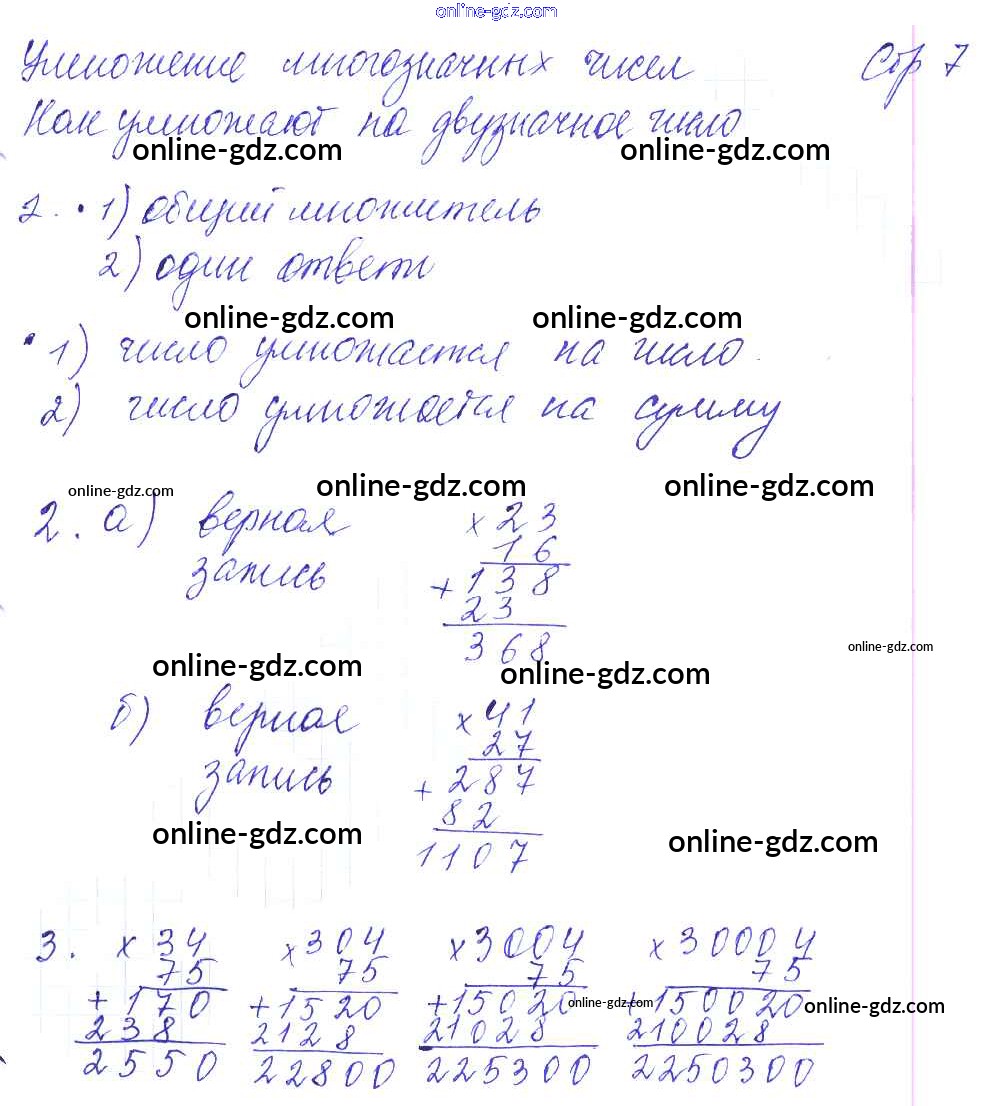 online-gdz.com
Умножение многозначных чисел Стр 7
Как умножают на двузначное число
online-gdz.com online-gdz.com
1. • 1) общий множитель
2) один ответ
online-gdz.com online-gdz.com
• 1) число умножается на число.
2) число умножается на сумму
online-gdz.com online-gdz.com online-gdz.com
2. а) верная × 23
запись 16
+ 138
23
368
online-gdz.com online-gdz.com online-gdz.com
б) верная × 41
запись 27
+ 287
82
1107
online-gdz.com online-gdz.com
3. × 34 × 304 × 3004 × 30004
75 75 75 75
+ 170 + 1520 + 15020 + 150020
online-gdz.com online-gdz.com
238 2128 21028 210028
2550 22800 225300 2250300